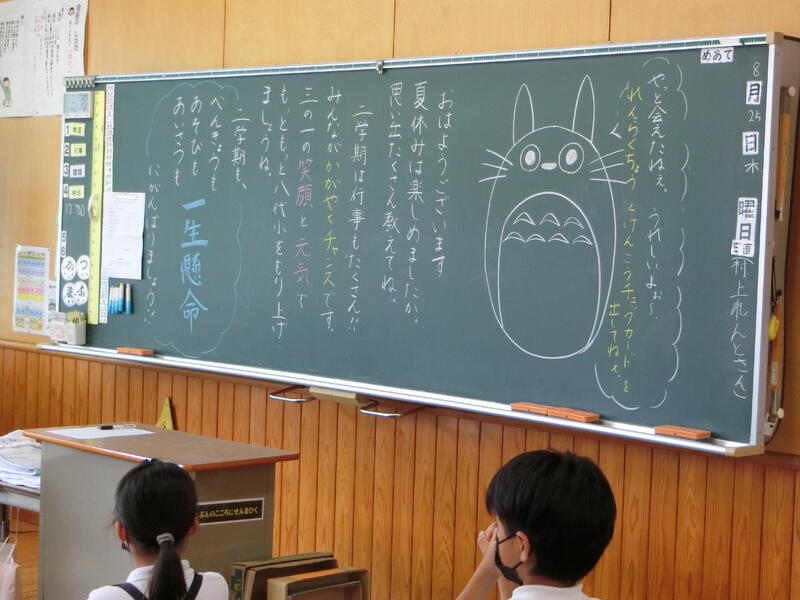 めあて
8
月
25
日
木
曜日
日直
(村上れんとさん)
やっと会えたねぇ。うれしいよぉ〜
れんらくちょう とけんこうチェックカードを
出してねぇ。
おはようございます
夏休みは楽しめましたか。
思い出たくさん教えてね。
二学期は行事もたくさん!!
みんながかがやくチャンスです。
三の一の笑顔と元気で
もっともっと八代小をもり上げ
ましょうね。
二学期も、
べんきょうも
あそびも
あいさつも
一生懸命
にがんばりましょう!!
1
学活
2
行事
3
4
学活
12:00
5
6
ぶんのこころにせんをひく